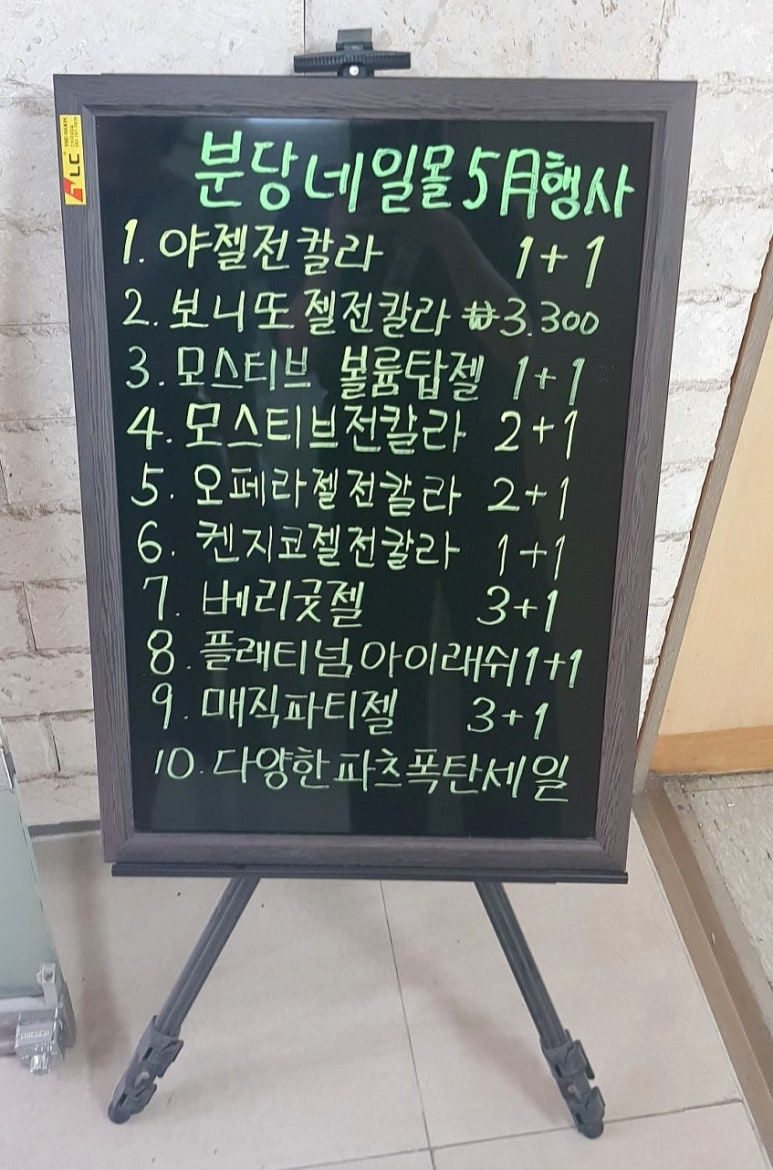 분당네일몰 5月행사
1. 야젤전칼라 1+1
2. 보니또젤전칼라 ₩3.300
3. 모스티브 볼륨탑젤 1+1
4. 모스티브전칼라 2+1
5. 오페라젤전칼라 2+1
6. 켄지코젤전칼라 1+1
7. 베리굿젤 3+1
8. 플래티넘아이래쉬 1+1
9. 매직파티젤 3+1
10. 다양한파츠폭탄세일